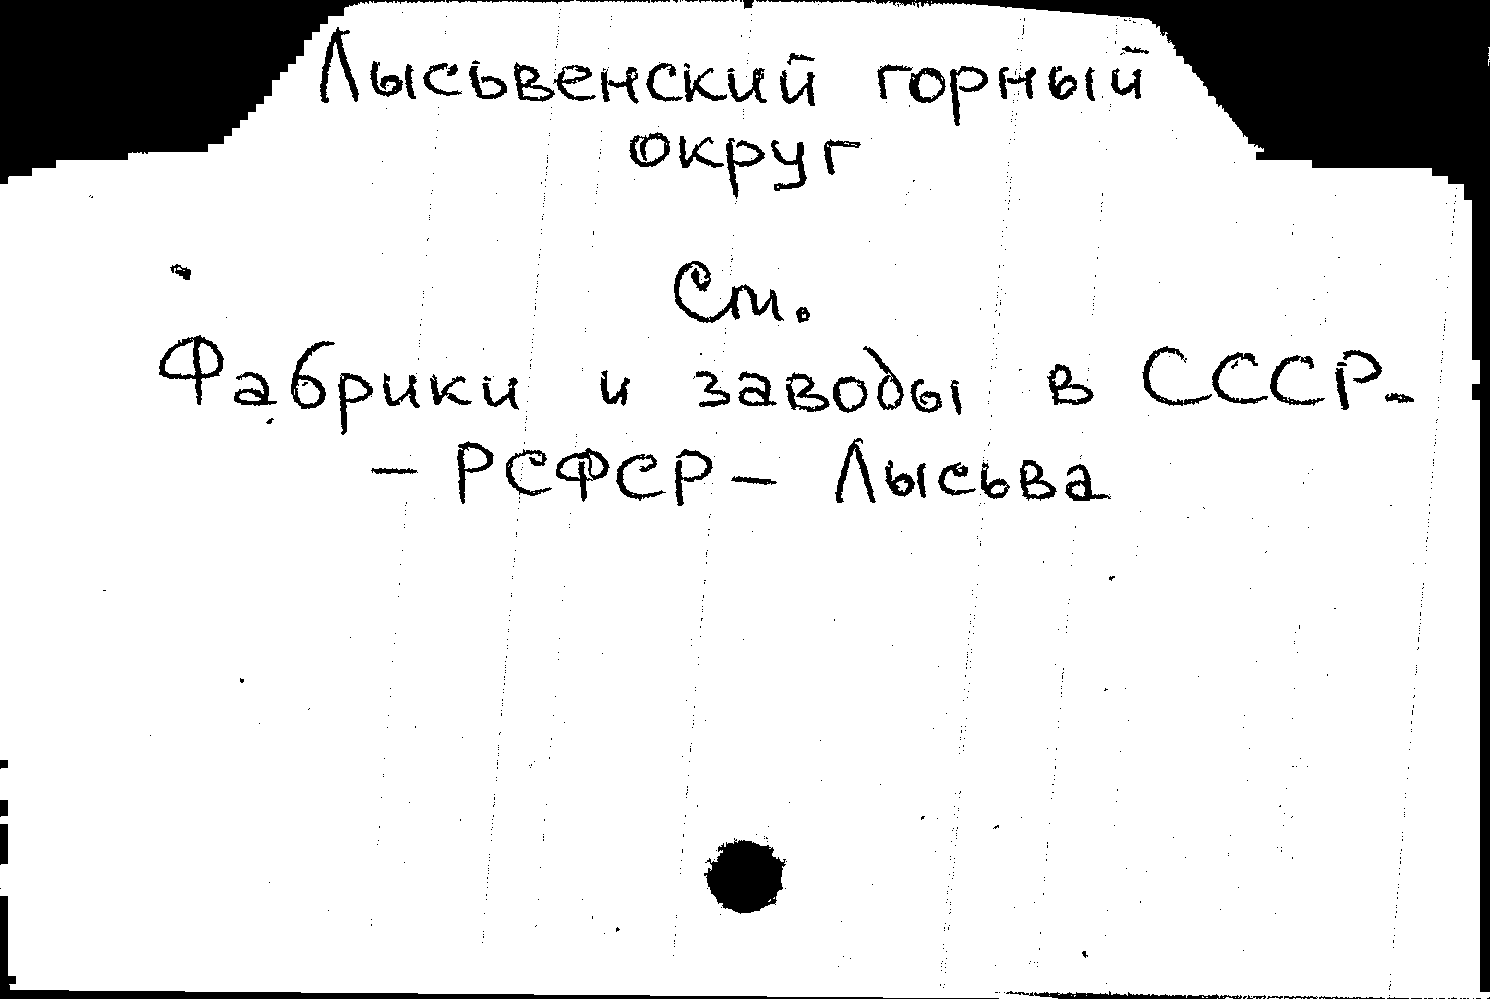 Лысьвенский горный
округ
См.
Фабрики и заводы в СССР-
- РСФСР - Лысьва